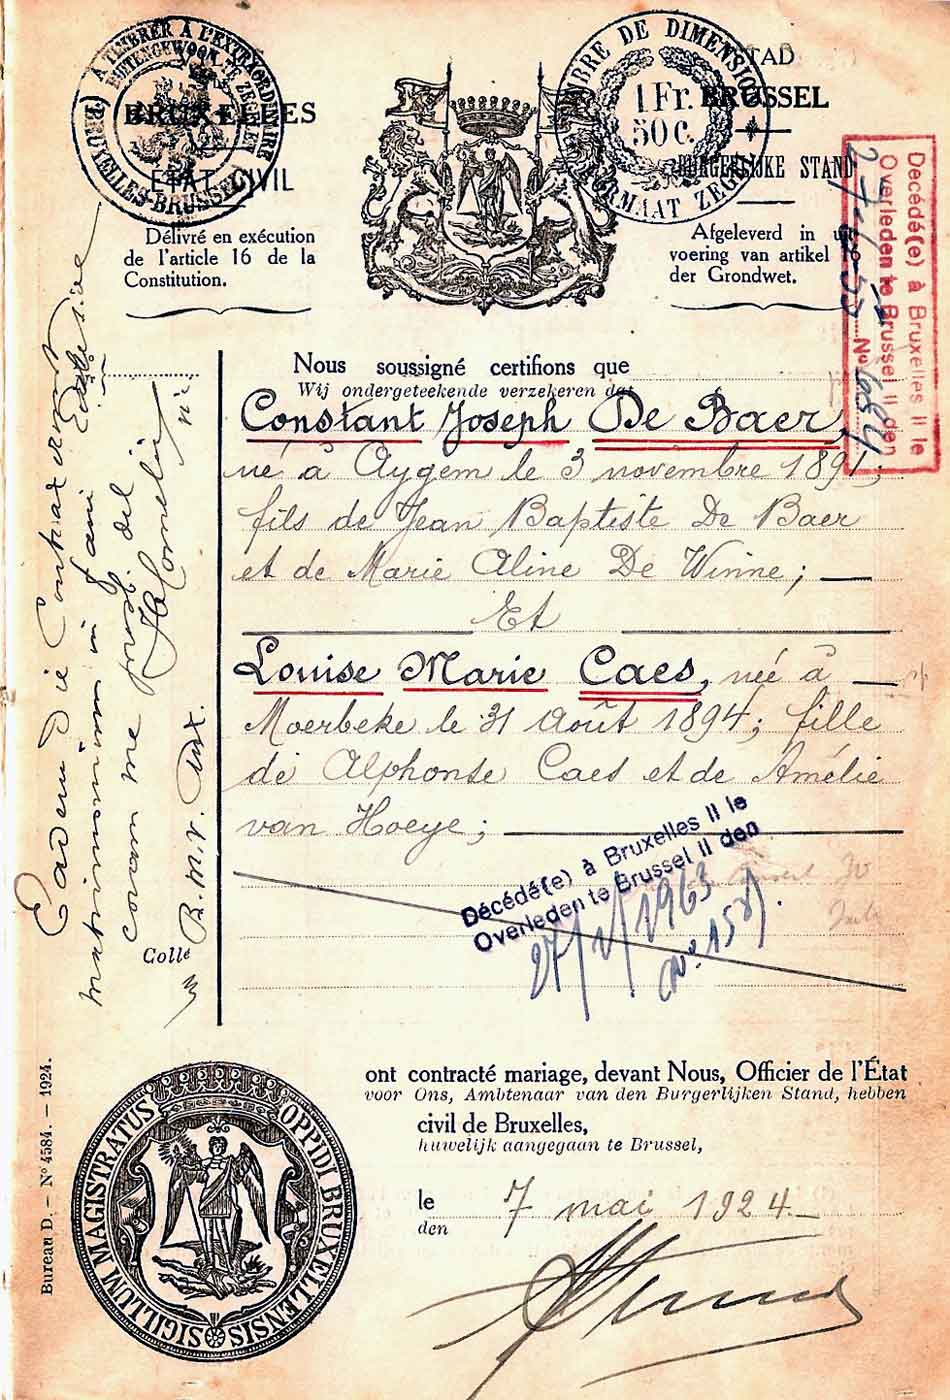 À TIMBRER À L'EXTRAORDINAIRE
BUITENGEWOON TE ZEGELEN
(BRUXELLES-BRUSSEL)
VILLE
DE
BRUXELLES
ÉTAT CIVIL
Délivré en exécution
de l'article 16 de la
Constitution.
TIMBRE DE DIMENSION
1 Fr.
50 c.
FORMAAT ZEGEL
STAD
BRUSSEL
BURGERLIJKE STAND
Afgeleverd in uit-
voering van artikel 16
der Grondwet.
Décédé(e) à Bruxelles II le
Overleden te Brussel II den
Nº 1684
Nous soussigné certifions que
Wij ondergeteekende verzekeren dat
Constant Joseph De Baer,
né à Aygem le 3 novembre 1891;
fils de Jean Baptiste De Baer
et de Marie Aline De Winne;
Et
Louise Marie Caes, née à
Moerbeke le 31 Août 1894; fille
de Alphonse Caes et de Amélie
van Hoeye;
Décédé(e) à Bruxelles II le
Overleden te Brussel II den
27/1/1963
(Nº 158).
Eadem die contraxerunt
matrimonium in facie Ecclesiae
coram me
vic
B.M.V.
Collé
ont contracté mariage, devant Nous, Officier de l'État
voor Ons, Ambtenaar van den Burgerlijken Stand, hebben
civil de Bruxelles,
huwelijk aangegaan te Brussel,
le 7 mai 1924
den
SIGILLUM MAGISTRATUS OPPIDI BRUXELLENSIS
Bureau D. — Nº 4584. — 1924.